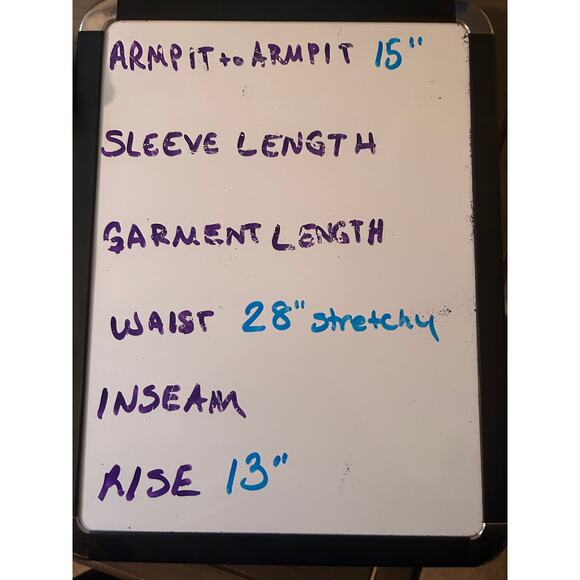 ARMPIT to ARMPIT 15"
SLEEVE LENGTH
GARMENT LENGTH
WAIST 28" stretchy
INSEAM
RISE 13"